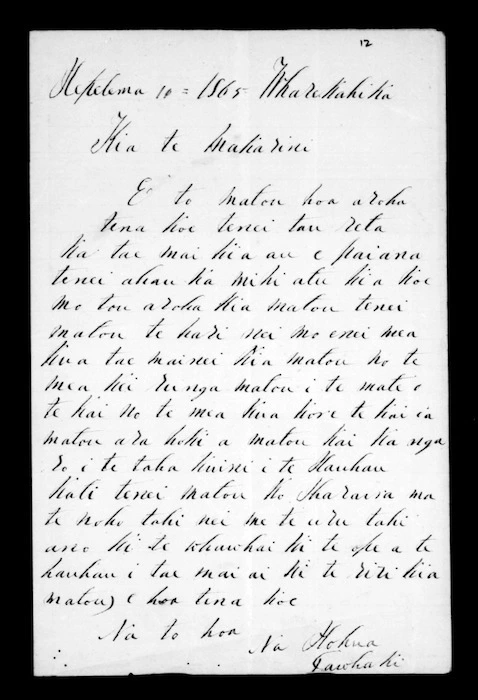 12
Hepetema 10 = 1865 Wharekahika
Kia te Makarini
E to matou hoa aroha
tena koe tenei tau reta
ka tae mai kia au e pai ana
tenei ahau ka mihi atu kia koe
mo tou aroha kia matou tenei
matou te hari nei mo enei mea
kua tae mai nei kia matou no te
mea kei runga matou i te mate o
te kai no te mea kua kore te kai ia
matou ara hoki a matou kai ka nga
ro i te taha kuini i te Hauhau
Kati tenei matou ko
te noho tahi nei me te uru tahi
ano ki te whawhai ki te ope a te
hauhau i tae mai ai ki te riri kia
matou) e hoa tena koe
Na to hoa
Na Hohua
Tawhaki